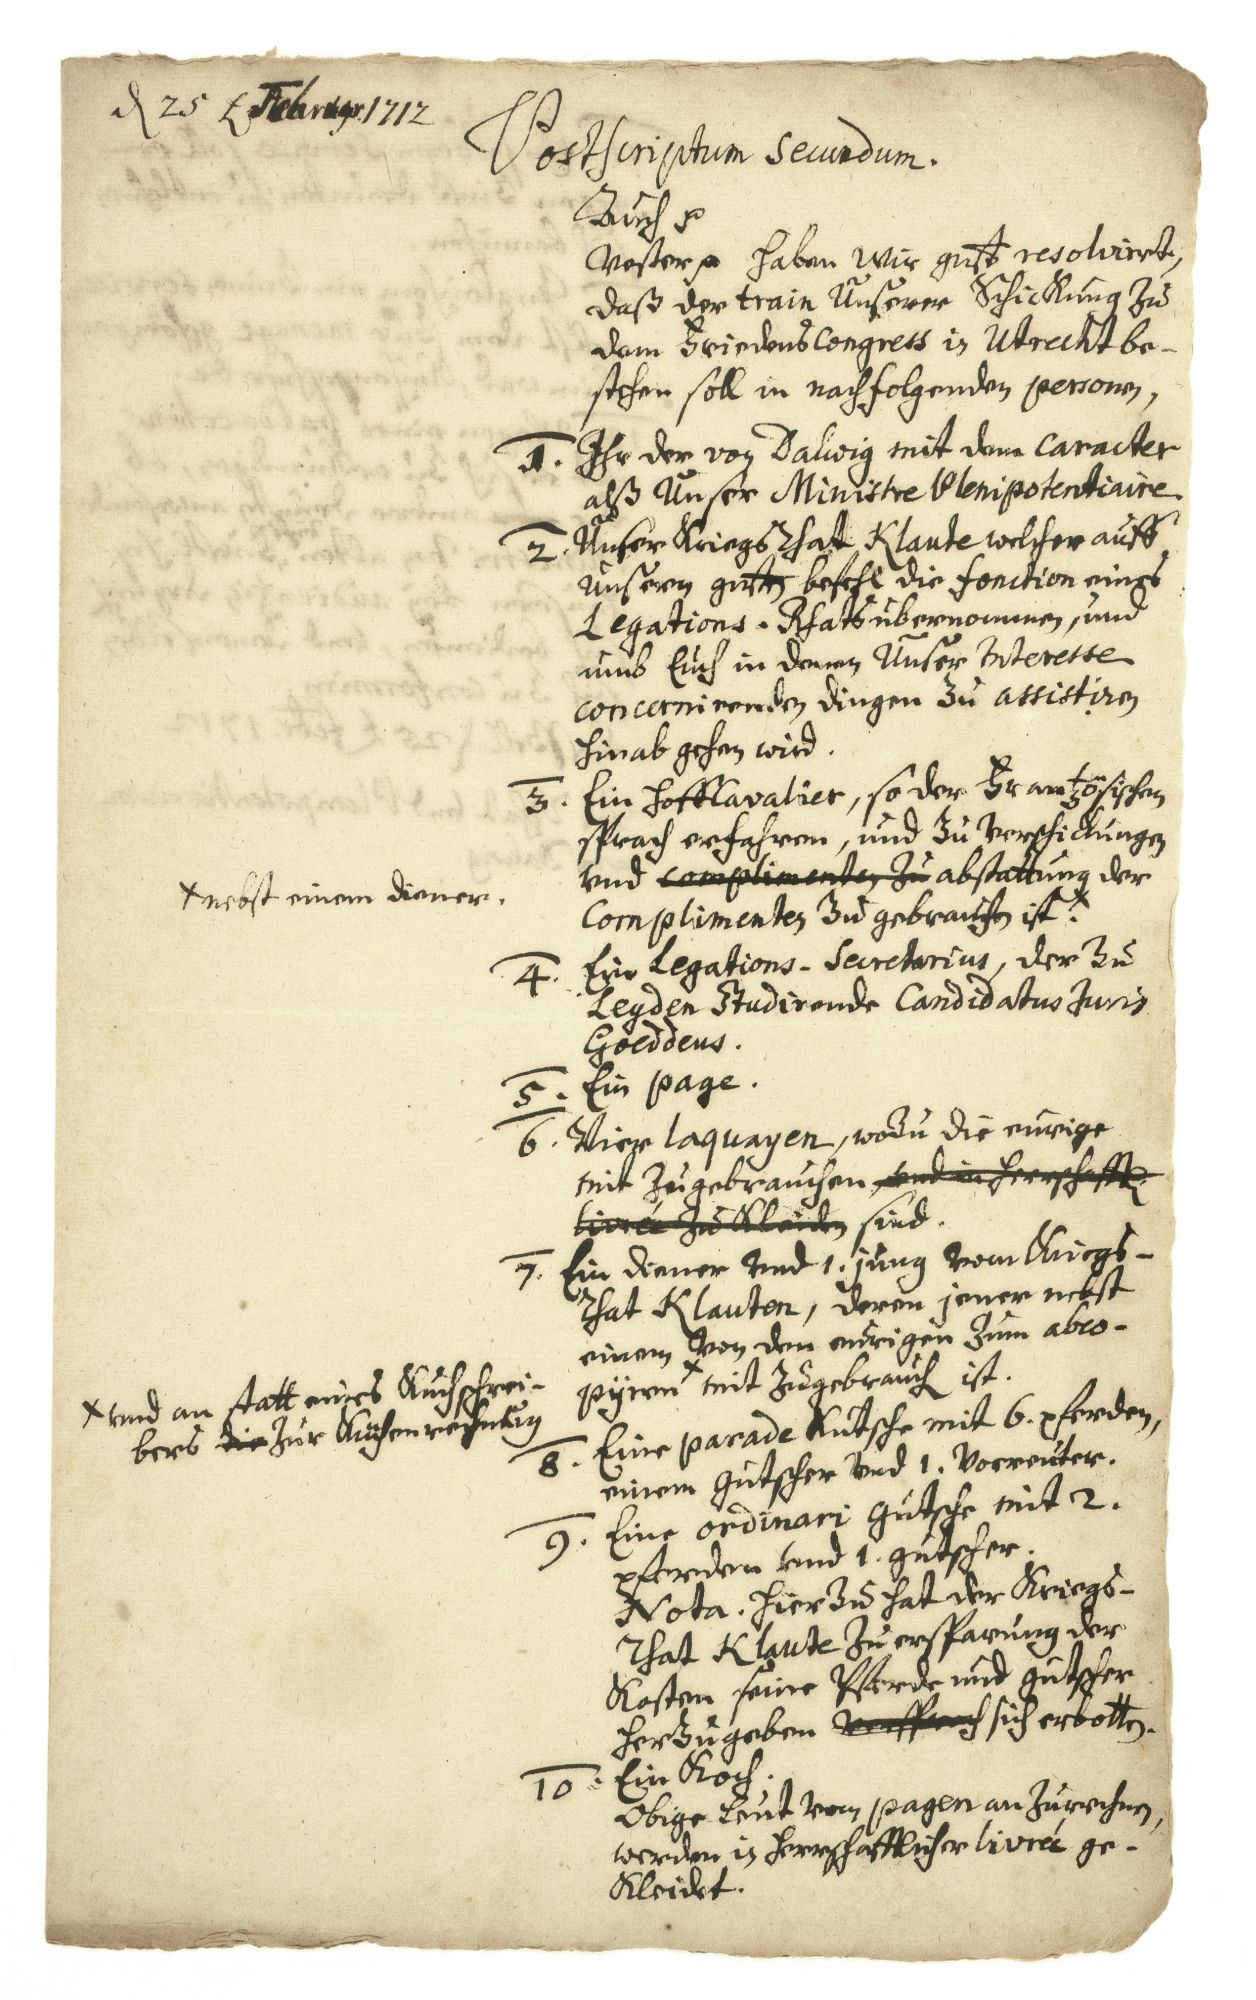 d 25 t Februar. 1712
Postscriptum Secundum.
Auch p
Vester p haben Wir gnst resolvirt,
daß der train Unserer Schickung zu
dem Friedens Congress in Utrecht be-
stehen soll in nachfolgenden personen,
1. Ihr der von Dalwig mit dem Caracter
alß Unser Ministre Plenipotentiaire
2. Unser Kriegs Rhat Klaute welcher auff
unseren gnsten befehl die fonction eines
Legations-Rhats übernommen, und
umb Euch in denen Unser Interesse
concernirenden dingen zu assistiren
hinab gehen wird.
3. Ein Hoff Cavalier, so der Frantzösischen
Sprach erfahren, und zu Verschickungen
und complimenten zu abstattung der
Complimenten zu gebrauchen ist. x
x nebst einem diener.
4. Ein Legations-Secretarius, der zu
Leyden Studirende Candidatus Juris
Goeddeus.
5. Ein page.
6. Vier laquayen, wozu die eurige
mit zugebrauchen und in herrschafftl.
livrée zu Kleiden sind.
7. Ein diener und 1. jung vom Kriegs-
Rhat Klauten, deren jener nebst
einem von den eurigen zum abco-
pyren x mit zugebrauch ist.
x und an statt eines Küchschrei-
bers die zur Küchenrechnung
8. Eine parade Kutsche mit 6. pferden,
einem gutscher und 1. Vorreuter.
9. Eine ordinari gutsche mit 2.
pferden und 1. gutscher.
Nota. hierzu hat der Kriegs-
Rhat Klaute zu ersparung der
Kosten seine Pferde und gutscher
herzugeben sich erbotten.
10. Ein Koch.
Obige Leut vom pagen an zurechnen,
werden in herrschafftlicher livrée ge-
Kleidet.